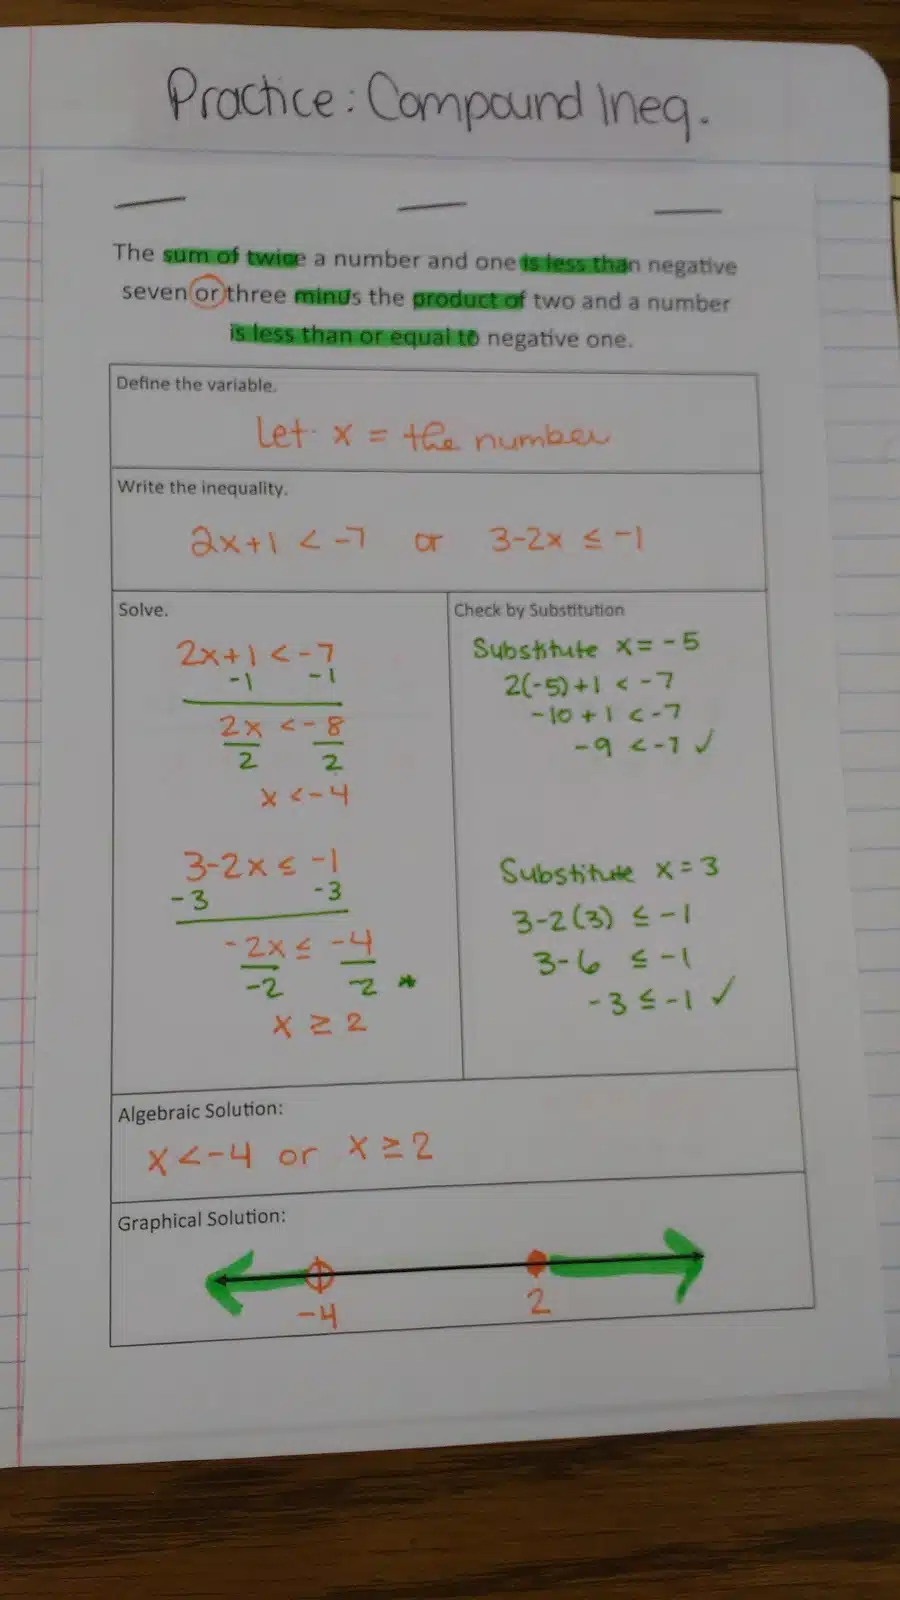 Practice: Compound Ineq.
The sum of twice a number and one is less than negative
seven or three minus the product of two and a number
is less than or equal to negative one.
Define the variable.
Let x = the number
Write the inequality.
2x+1 < -7 or 3-2x ≤ -1
Solve.
2x+1 < -7
-1 -1
2x < -8
2 2
x < -4
3-2x ≤ -1
-3 -3
-2x ≤ -4
-2 -2 *
x ≥ 2
Check by Substitution
Substitute x = -5
2(-5)+1 < -7
-10+1 < -7
-9 < -7 ✓
Substitute x = 3
3-2(3) ≤ -1
3-6 ≤ -1
-3 ≤ -1 ✓
Algebraic Solution:
x < -4 or x ≥ 2
Graphical Solution:
-4 2